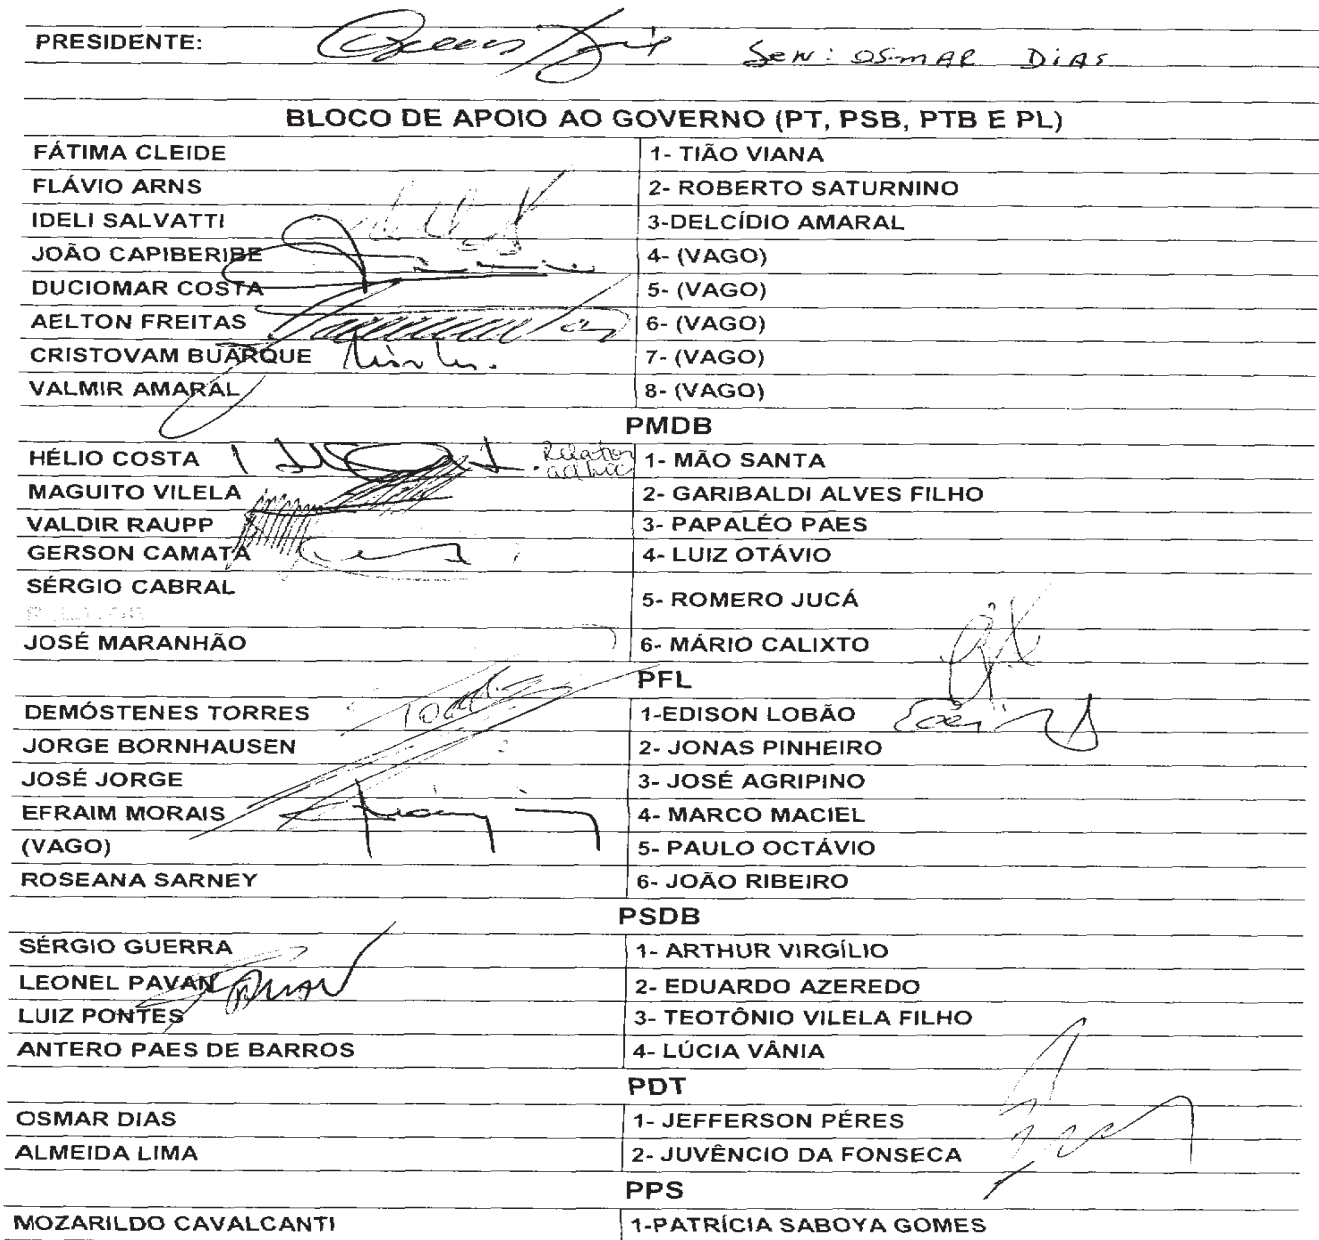 PRESIDENTE: Sen: Osmar Dias
BLOCO DE APOIO AO GOVERNO (PT, PSB, PTB E PL)
FÁTIMA CLEIDE 1- TIÃO VIANA
FLÁVIO ARNS 2- ROBERTO SATURNINO
IDELI SALVATTI 3-DELCÍDIO AMARAL
JOÃO CAPIBERIBE 4- (VAGO)
DUCIOMAR COSTA 5- (VAGO)
AELTON FREITAS 6- (VAGO)
CRISTOVAM BUARQUE 7- (VAGO)
VALMIR AMARAL 8- (VAGO)
PMDB
HÉLIO COSTA Relator 1- MÃO SANTA
MAGUITO VILELA 2- GARIBALDI ALVES FILHO
VALDIR RAUPP 3- PAPALÉO PAES
GERSON CAMATA 4- LUIZ OTÁVIO
SÉRGIO CABRAL 5- ROMERO JUCÁ
JOSÉ MARANHÃO 6- MÁRIO CALIXTO
PFL
DEMÓSTENES TORRES 1-EDISON LOBÃO
JORGE BORNHAUSEN 2- JONAS PINHEIRO
JOSÉ JORGE 3- JOSÉ AGRIPINO
EFRAIM MORAIS 4- MARCO MACIEL
(VAGO) 5- PAULO OCTÁVIO
ROSEANA SARNEY 6- JOÃO RIBEIRO
PSDB
SÉRGIO GUERRA 1- ARTHUR VIRGÍLIO
LEONEL PAVAN 2- EDUARDO AZEREDO
LUIZ PONTES 3- TEOTÔNIO VILELA FILHO
ANTERO PAES DE BARROS 4- LÚCIA VÂNIA
PDT
OSMAR DIAS 1- JEFFERSON PÉRES
ALMEIDA LIMA 2- JUVÊNCIO DA FONSECA
PPS
MOZARILDO CAVALCANTI 1-PATRÍCIA SABOYA GOMES